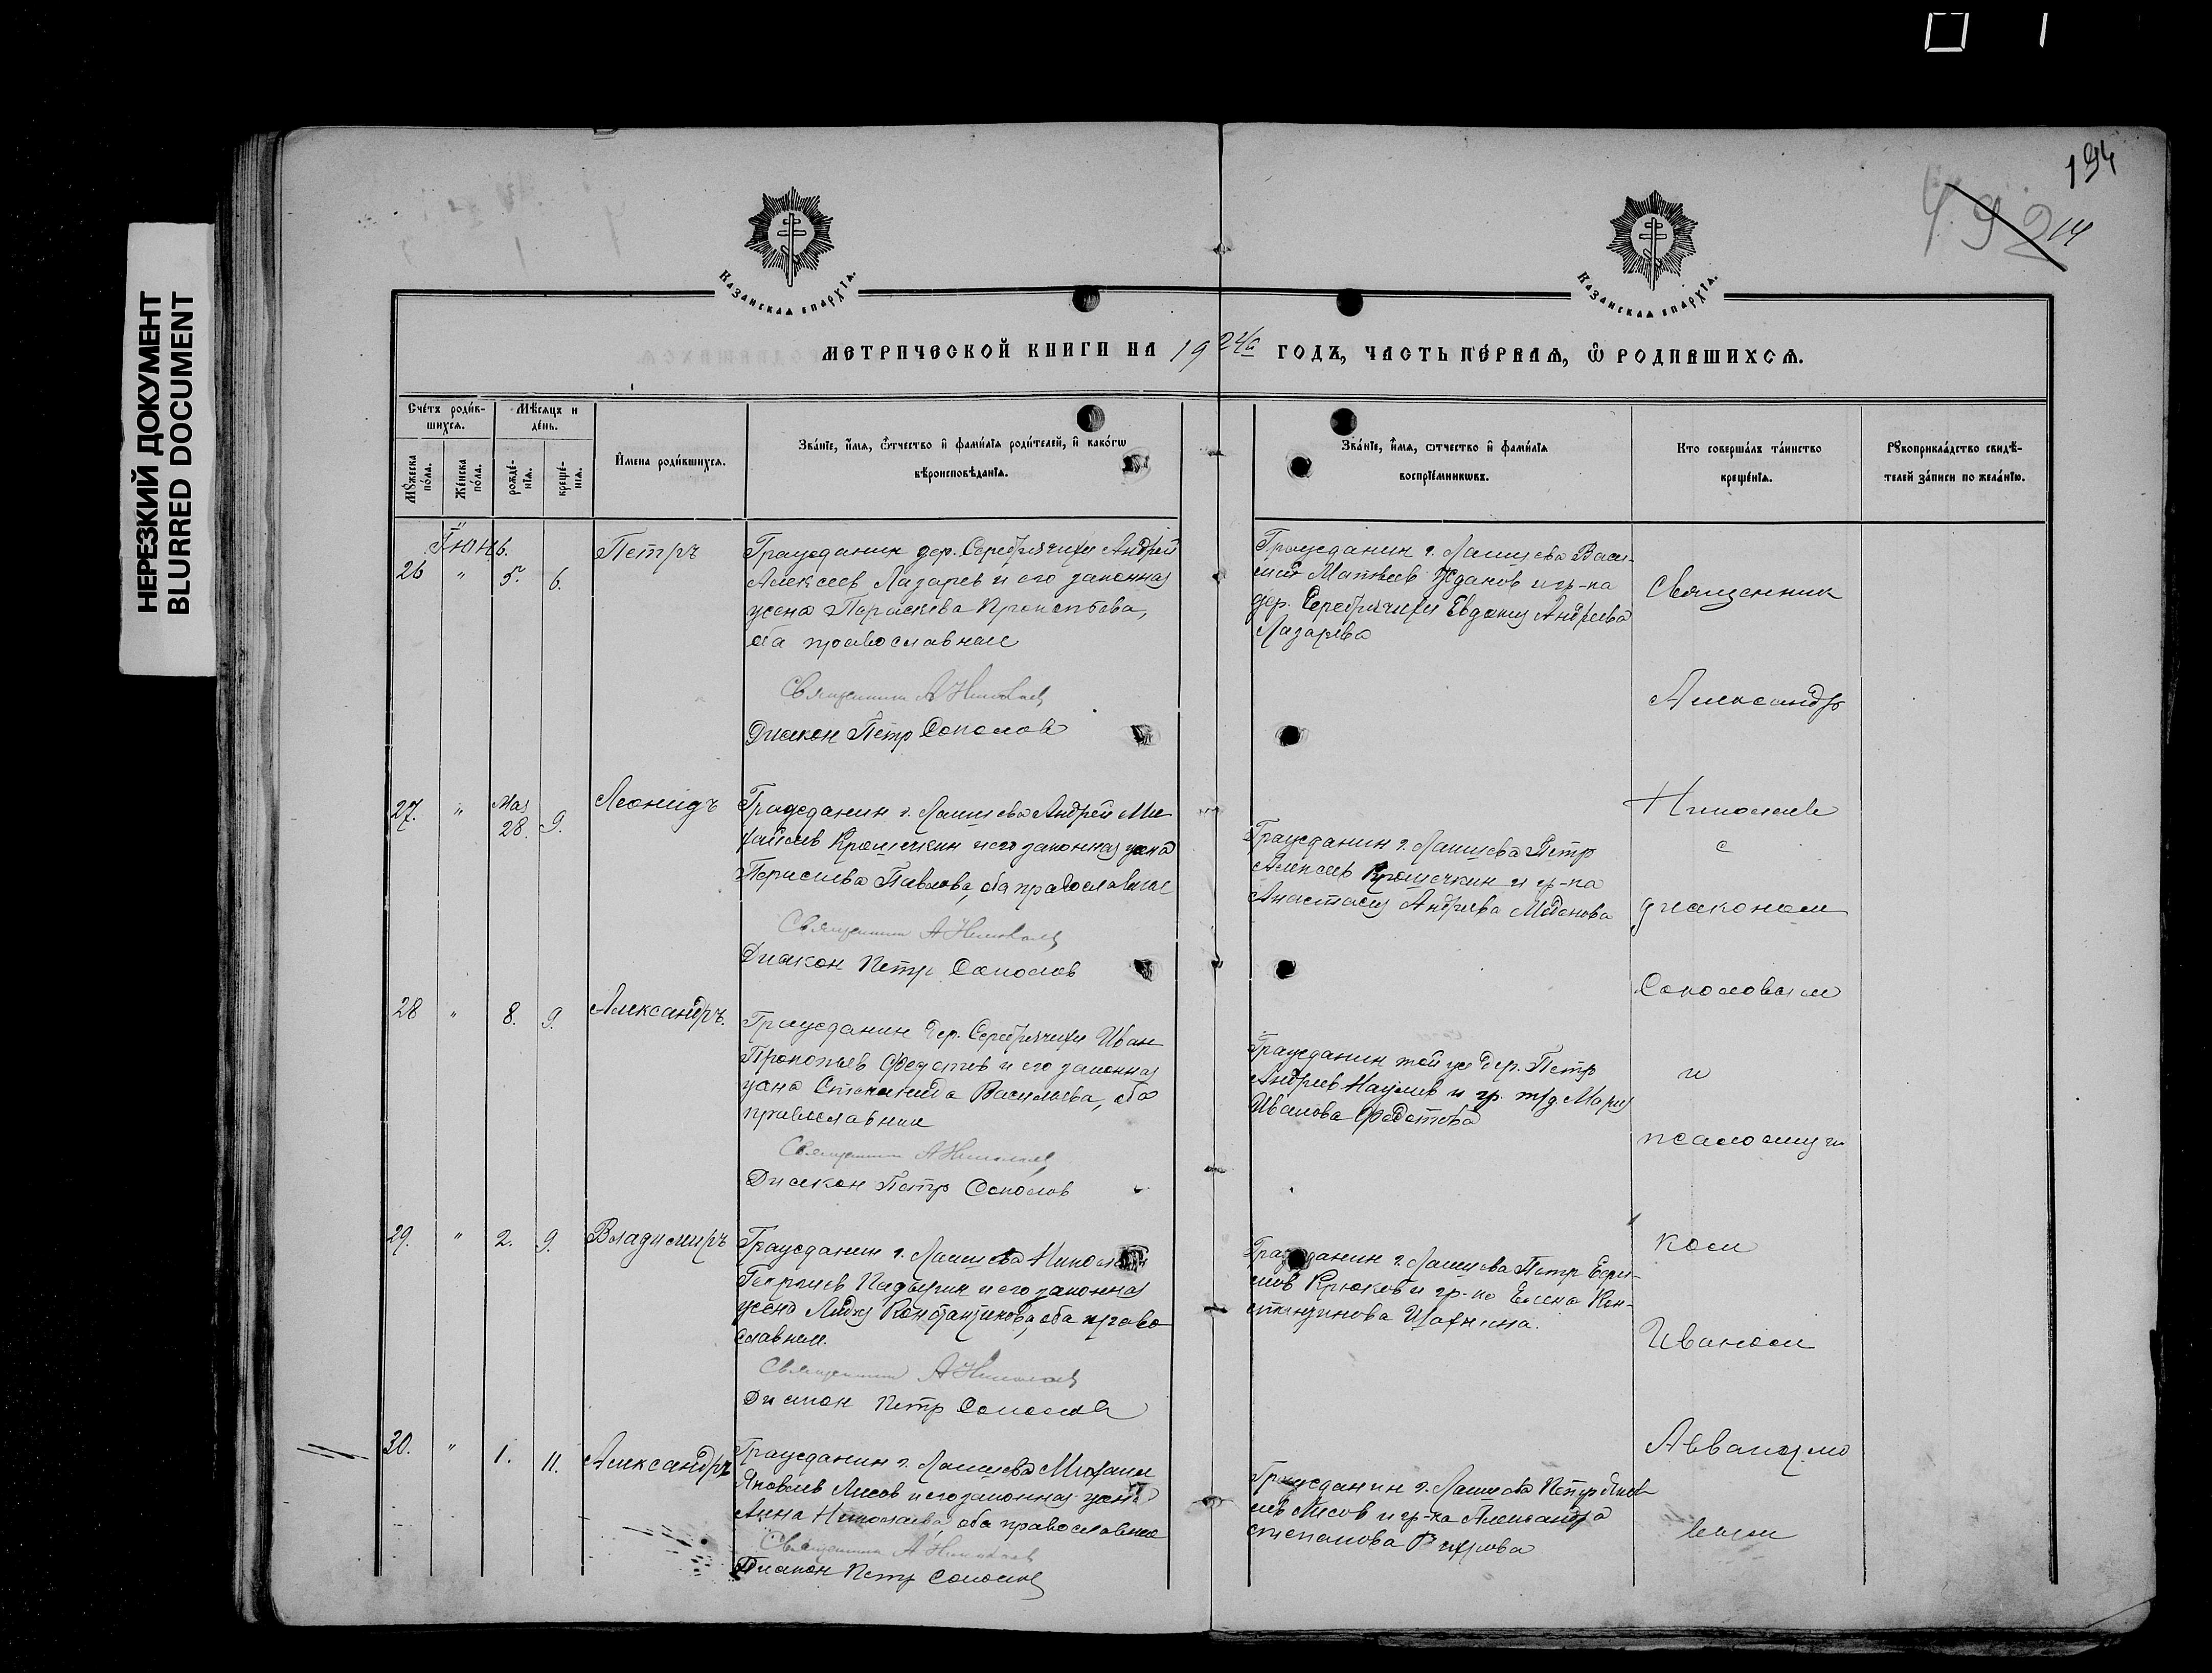 НЕРЕЗКИЙ ДОКУМЕНТ
BLURRED DOCUMENT
194
492
14
Казанская епархїѧ.
Казанская епархїѧ.
Метрической книги на 1924й годъ, часть первая, ѿ родившихся.
Счетъ родившихся.
Мѹжеска пола.
Женска пола.
Мѣсяцъ и день.
рожденїя.
крещенїя.
Имена родившихся.
Званїе, имя, отчество и фамилїя родителей, и какогѡ
вѣроисповѣданїя.
Званїе, имя, отчество и фамилїя
воспрїемникѡвъ.
Кто совершалъ таинство
крещенїя.
Рѹкоприкладство свидѣ-
телей записи по желанїю.
Іюнь.
26 " 5. 6.
Петръ
Гражданин дер. Серебрячихи Андрей
Алексеев Лазарев и его законная
жена Параскева Прокопьева,
оба православные
Священник А Николаев
Диакон Петр Соколов
Гражданин г. Лаишева Васи-
лий Матвеев Жданов и гр-ка
дер. Серебрячихи Евдокия Андреева
Лазарева
27. " Мая 28. 9.
Леонидъ
Гражданин г. Лаишева Андрей Ми-
хайлов Крошечкин и его законная жена
Параскева Павлова, оба православные
Священник А Николаев
Диакон Петр Соколов
Гражданин г. Лаишева Петр
Алексеев Крошечкин и гр-ка
Анастасия Андреева
28 " 8. 9.
Александръ.
Гражданин дер. Серебрячихи Иван
Прокопьев Федотов и его законная
жена Степанида Васильева, оба
православные
Священник А Николаев
Диакон Петр Соколов
Гражданин той же дер. Петр
Андреев Наумов и гр. т/д Мария
Иванова Федотова
29. " 2. 9.
Владимиръ
Гражданин г. Лаишева Николай
Гаврилов и его законная
жена Лидия Константинова, оба право
славные.
Священник А Николаев
Диакон Петр Соколов
Гражданин г. Лаишева Петр
Крюков и гр-ка Елена Кон-
стантинова
30. " 1. 11.
Александръ
Гражданин г. Лаишева Михаил
Яковлев Лисов и его законная жена
Анна Николаева, оба православные
Священник А Николаев
Диакон Петр Соколов
Гражданин г. Лаишева Петр
Лисов и гр-ка Александра
Степанова
Священник
Александр
Николаев
с
диаконом
Соколовым
и
псаломщи
ком
Иваном